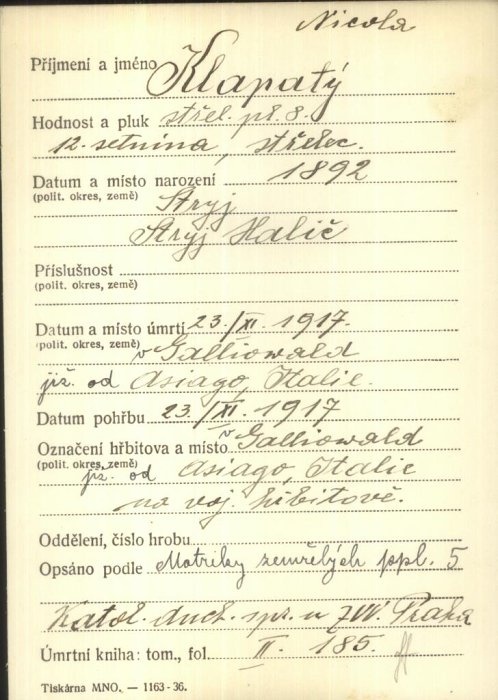 Nicola
Příjmení a jméno Klapatý
Hodnost a pluk střel. pl. 8.
12. setnina, střelec.
Datum a místo narození 1892
(polit. okres, země) Stryj
Stryj Halič
Příslušnost
(polit. okres, země)
Datum a místo úmrtí 23./XI. 1917.
(polit. okres, země) v Galliowald
již. od Asiago, Italie.
Datum pohřbu 23./XI. 1917
Označení hřbitova a místo v Galliowald
(polit. okres, země) již. od Asiago, Italie
na voj. hřbitově.
Oddělení, číslo hrobu
Opsáno podle Matriky zemřelých ppl. 5
Katol. duch. spr. u ZVV. Praha
Úmrtní kniha: tom., fol. II. 185.
Tiskárna MNO. — 1163-36.